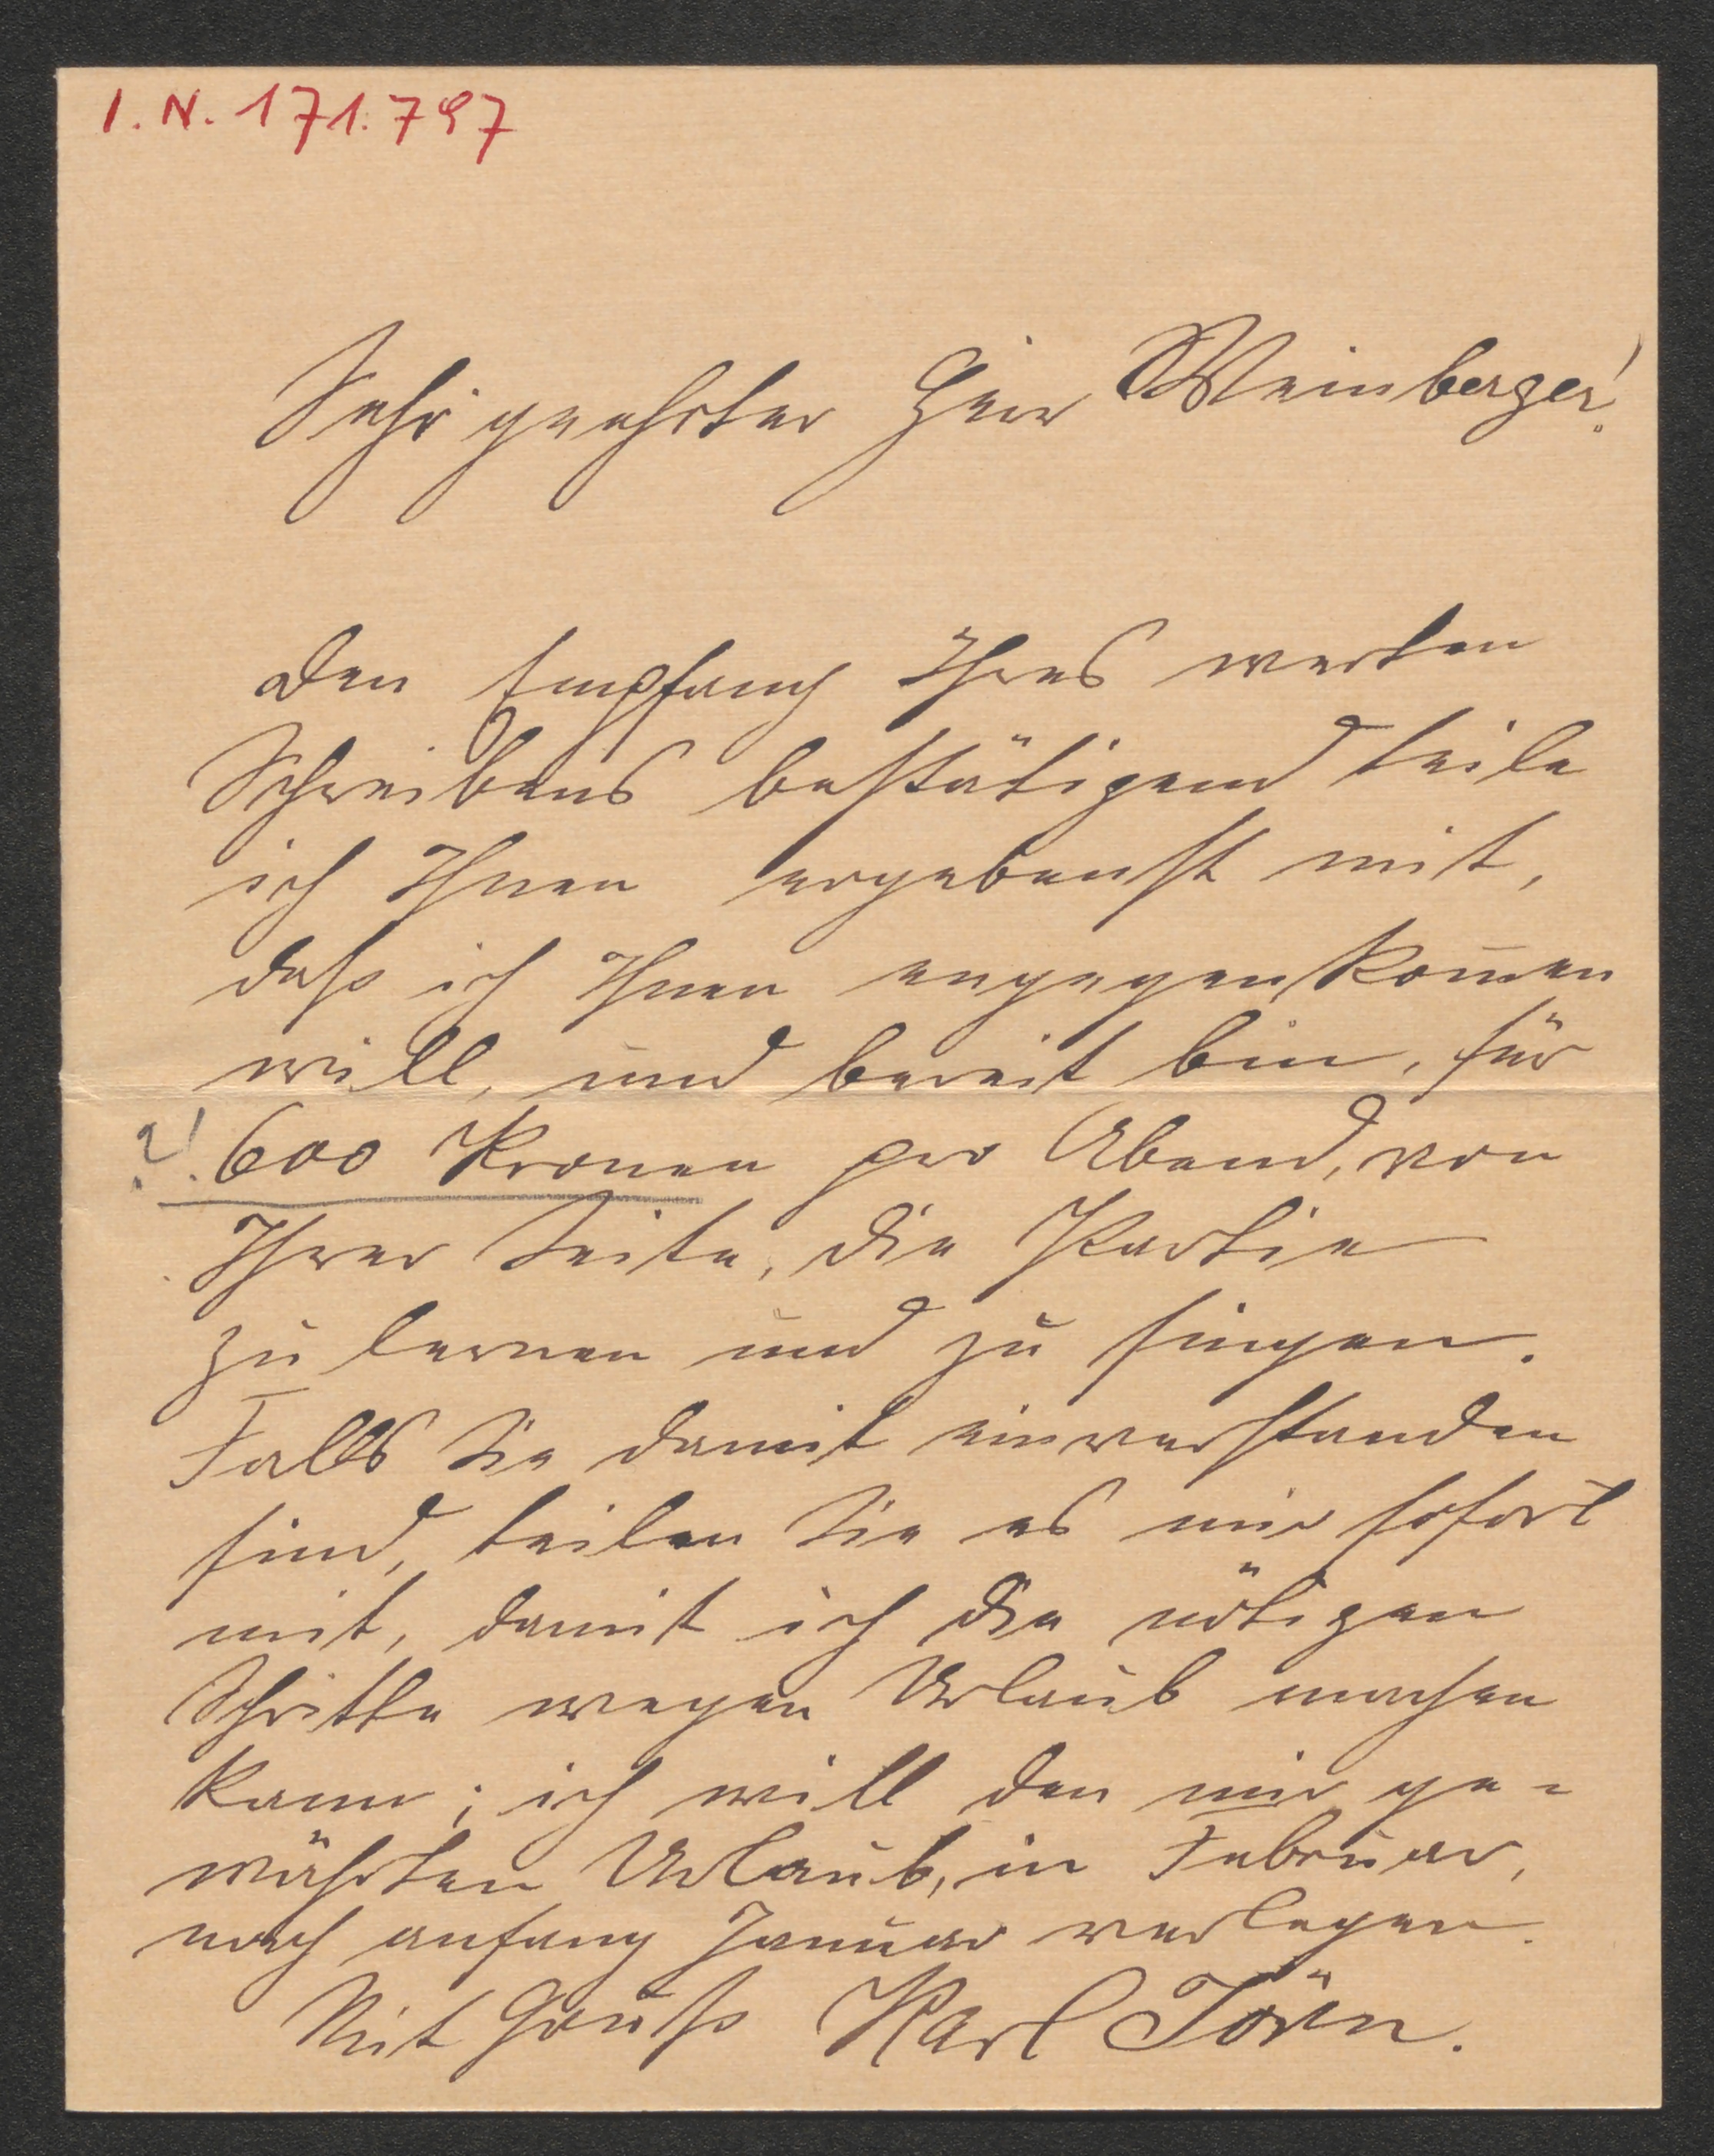 I. N. 171.797
Sehr geehrter Herr Weinberger!
Den Empfang Ihres werten
Schreibens bestätigend teile
ich Ihnen ergebenst mit,
daß ich Ihnen engegenkom̅en
will, und bereit bin, für
?! 600 Kronen pro Abend, von
Ihrer Seite, die Partie
zu lernen und zu singen.
Falls Sie damit einverstanden
sind, teilen Sie es mir sofort
mit, damit ich die nötigen
Schritte wegen Urlaub machen
kann; ich will den mir ge-
währten Urlaub, in Februar,
nach anfang Januar verlegen.
Mit Gruß Karl Jörn.